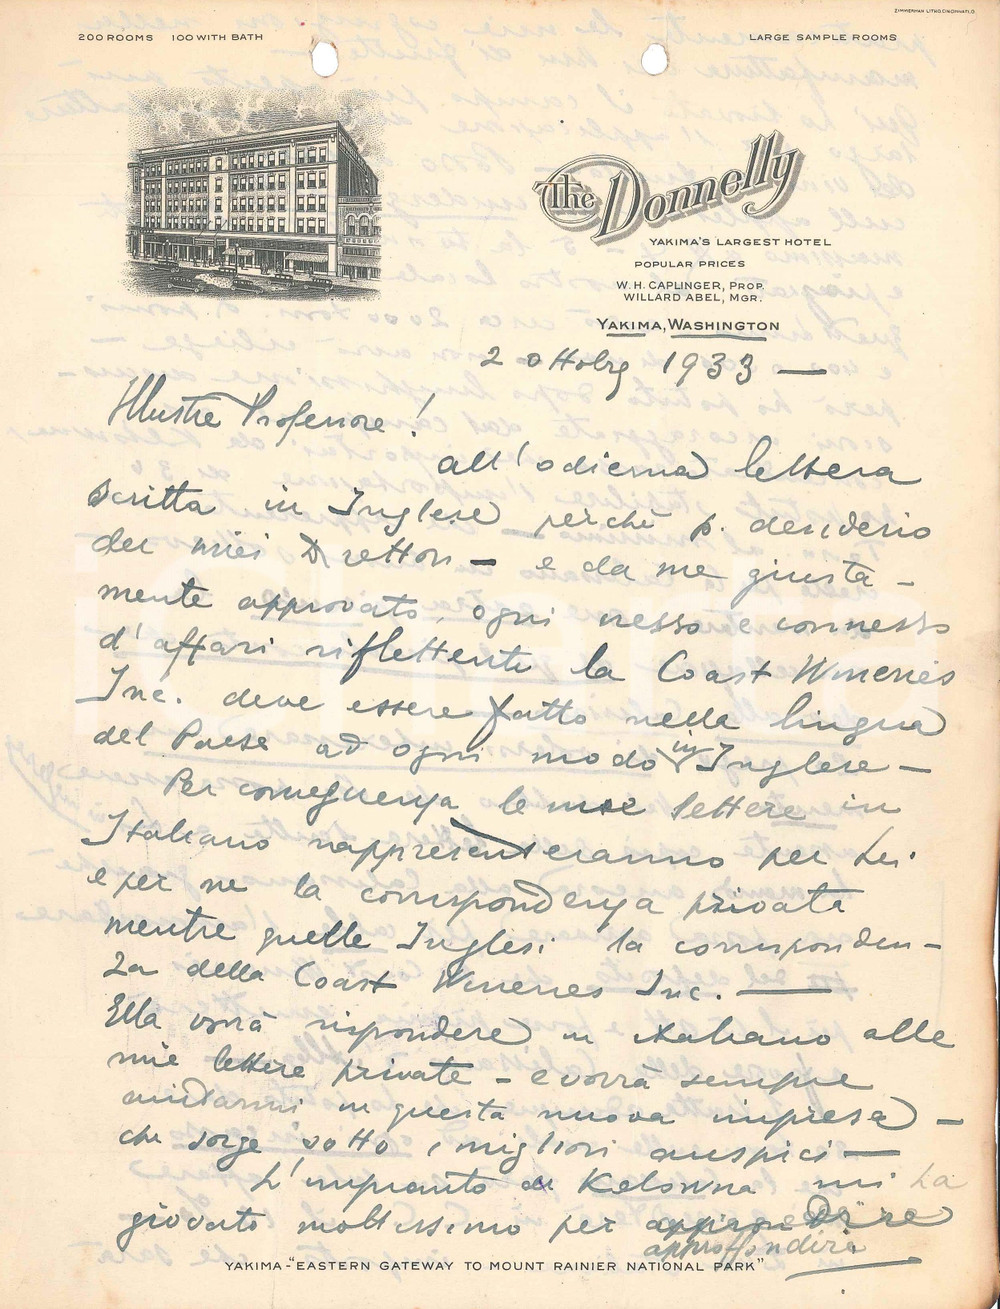 ZIMMERMAN LITHO. CINCINNATI, O.
200 ROOMS 100 WITH BATH
LARGE SAMPLE ROOMS
The Donnelly
YAKIMA'S LARGEST HOTEL
POPULAR PRICES
W. H. CAPLINGER, PROP.
WILLARD ABEL, MGR.
YAKIMA, WASHINGTON
2 ottobre 1933 —
Illustre Professore!
all'odierna lettera
scritta in Inglese perchè p. desiderio
dei miei Direttori — e da me giusta-
mente approvato, ogni nesso e connesso
d'affari riflettente la Coast Wineries
Inc. deve essere fatto nella lingua
del Paese ad ogni modo in Inglese —
Per conseguenza le mie lettere in
Italiano rappresenteranno per Lei
e per me la corrispondenza privata
mentre quelle Inglesi la corrisponden-
za della Coast Wineries Inc. —
Ella vorrà rispondere in italiano alle
mie lettere private — e vorrà sempre
aiutarmi in questa nuova impresa —
che sorge sotto i migliori auspici —
L'impianto di Kelowna mi ha
giovato moltissimo per
approfondire
YAKIMA - "EASTERN GATEWAY TO MOUNT RAINIER NATIONAL PARK"